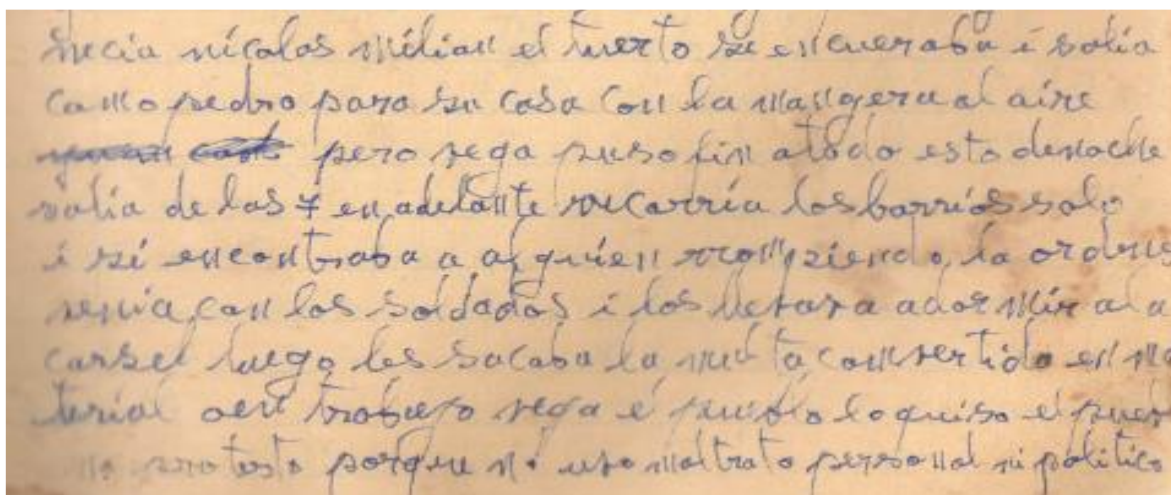 necia nícolas milian el tuerto se encueraba i salia
como pedro para su casa con la mangera al aire
pero vega puso fin atodo esto denoche
salia de las 7 en adelante recarria los barrios solo
i si encontraba a alguien rrompiendo la orden
venia con los soldados i los llevava adormir al a
carsel luego les sacaba la multa convertido en ma
terial oen trabajo vega el pueblo lo quiso el pueb
no protesto porque no uso maltrato personal ni politico